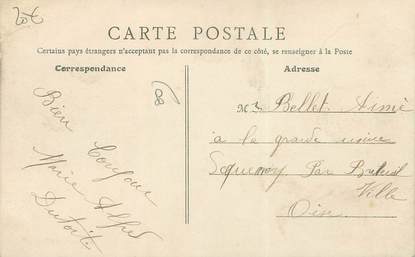 20€
CARTE POSTALE
Certains pays étrangers n'acceptant pas la correspondance de ce côté, se renseigner à la Poste
Correspondance
Adresse
Bien
Marie Alfred
Bellet Aimé
à la grande usine
Par
Ville
Oise